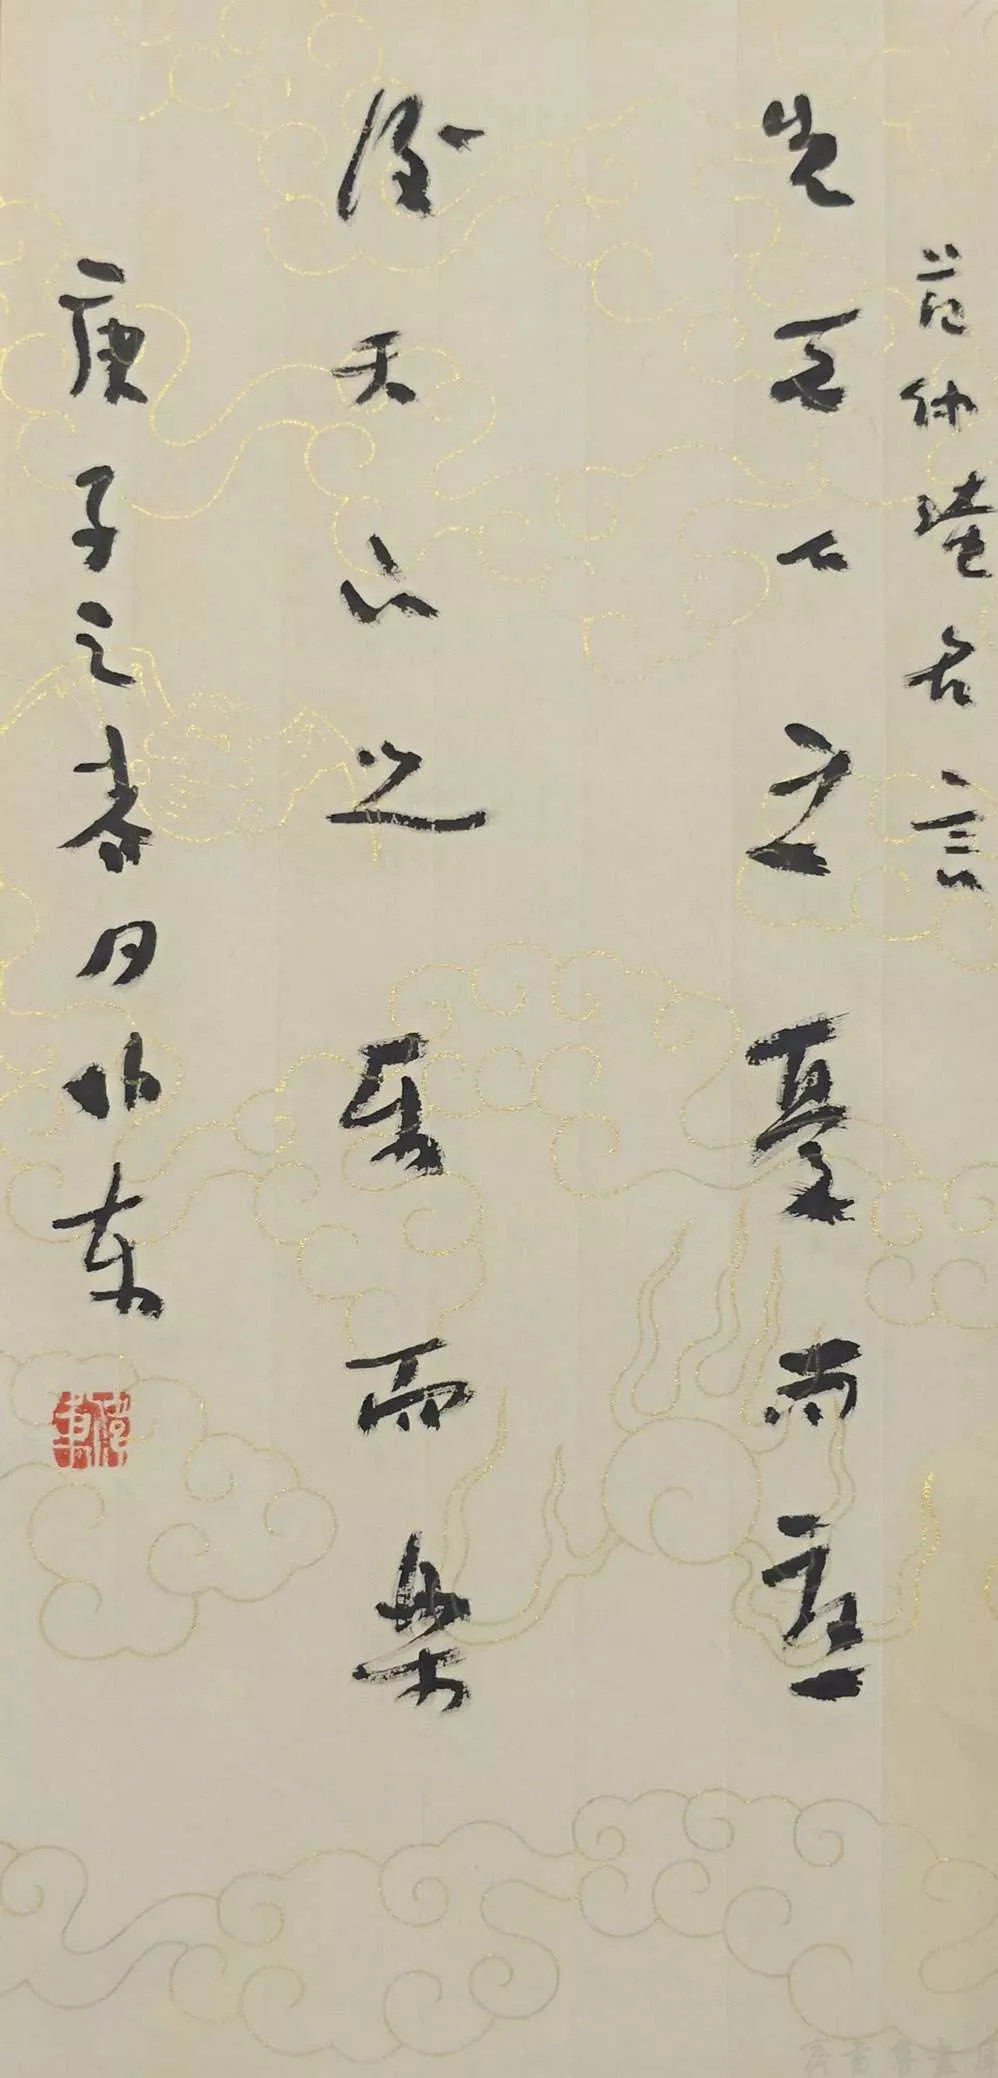 范仲淹名言
先天下之憂而憂
後天下之乐而樂
庚子之春月伟东